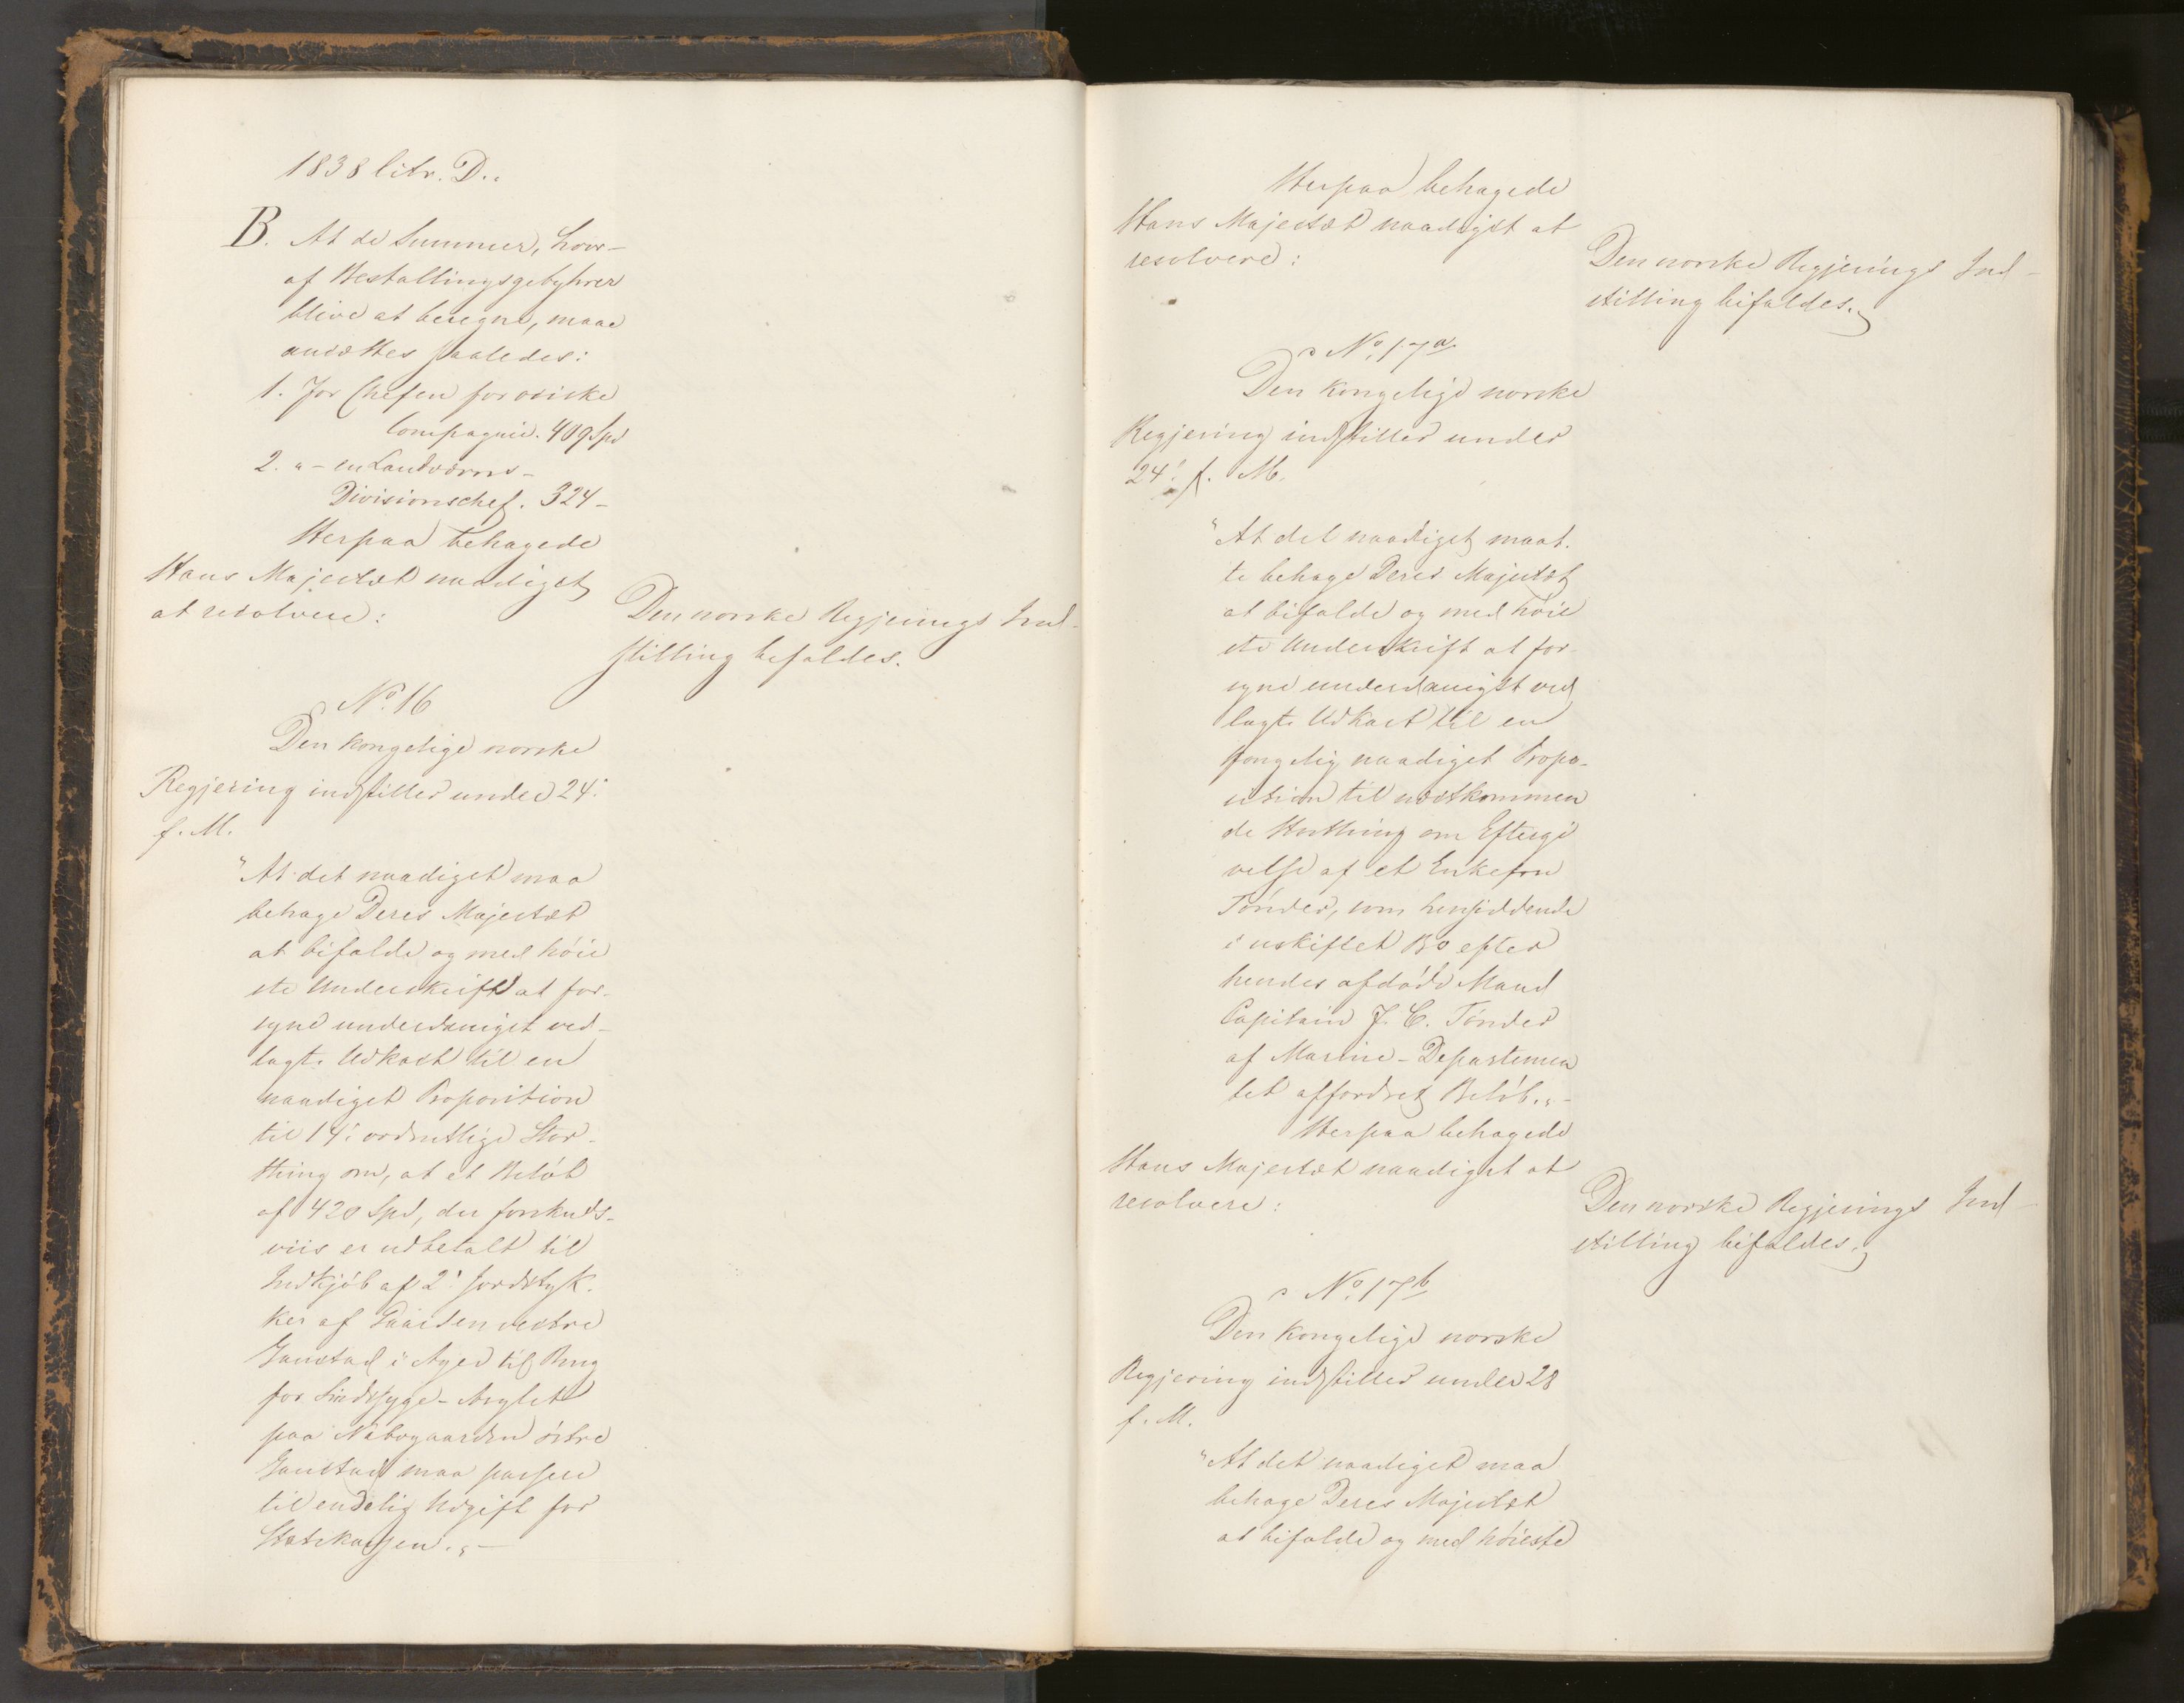 1838 litr. D.
B. At de Summer, hvor-
af Bestallingsgebyhrer
blive at beregne, maae
ansættes saaledes:
1. For Chefen for oviske
Compagnie. 409 Spd
2. " - en Landværns-
Divisionschef. 324 -
Herpaa behagede
Hans Majestæt naadigst
at resolvere:
Den norske Regjerings Ind-
stilling bifaldes.
No. 16
Den kongelige norske
Regjering indstiller under 24.
f. M.
"At det naadigst maa
behage Deres Majestæt
at bifalde og med höie
ste Underskrift at for-
syne underdanigst ved-
lagte Udkast til en
naadigst Proposition
til 14. ordentlige Stor-
thing om, at et Belöb
af 420 Spd, der forskuds-
viis er udbetalt til
Indkjöb af 2. Jordstyk-
ker af Gaarden vestre
Gaustad i Ager til Brug
for Sindssyge-Asylet
paa Nabogaarden östre
Gaustad maa passere
til endelig Udgift for
Statskassen." -
Herpaa behagede
Hans Majestæt naadigst at
resolvere:
Den norske Regjerings Ind-
stilling bifaldes.
No. 17a
Den kongelige norske
Regjering indstiller under
24. f. M.
"At det naadigst maat-
te behage Deres Majestæt
at bifalde og med höie
ste Underskrift at for-
syne underdanigst ved
lagte Udkast til en
kongelig naadigst Propo-
sition til næstkommen
de Storthing om Eftergi
velse af et Enkefru
Tönder, som hensiddende
i uskiftet Bo efter
hendes afdöde Mand
Capitain J. C. Tönder
af Marine-Departemen
tet affordret Belöb." -
Herpaa behagede
Hans Majestæt naadigst at
resolvere:
Den norske Regjerings Ind-
stilling bifaldes.
No. 17b
Den kongelige norske
Regjering indstiller under 28
f. M.
"At det naadigst maa
behage Deres Majestæt
at bifalde og med höieste